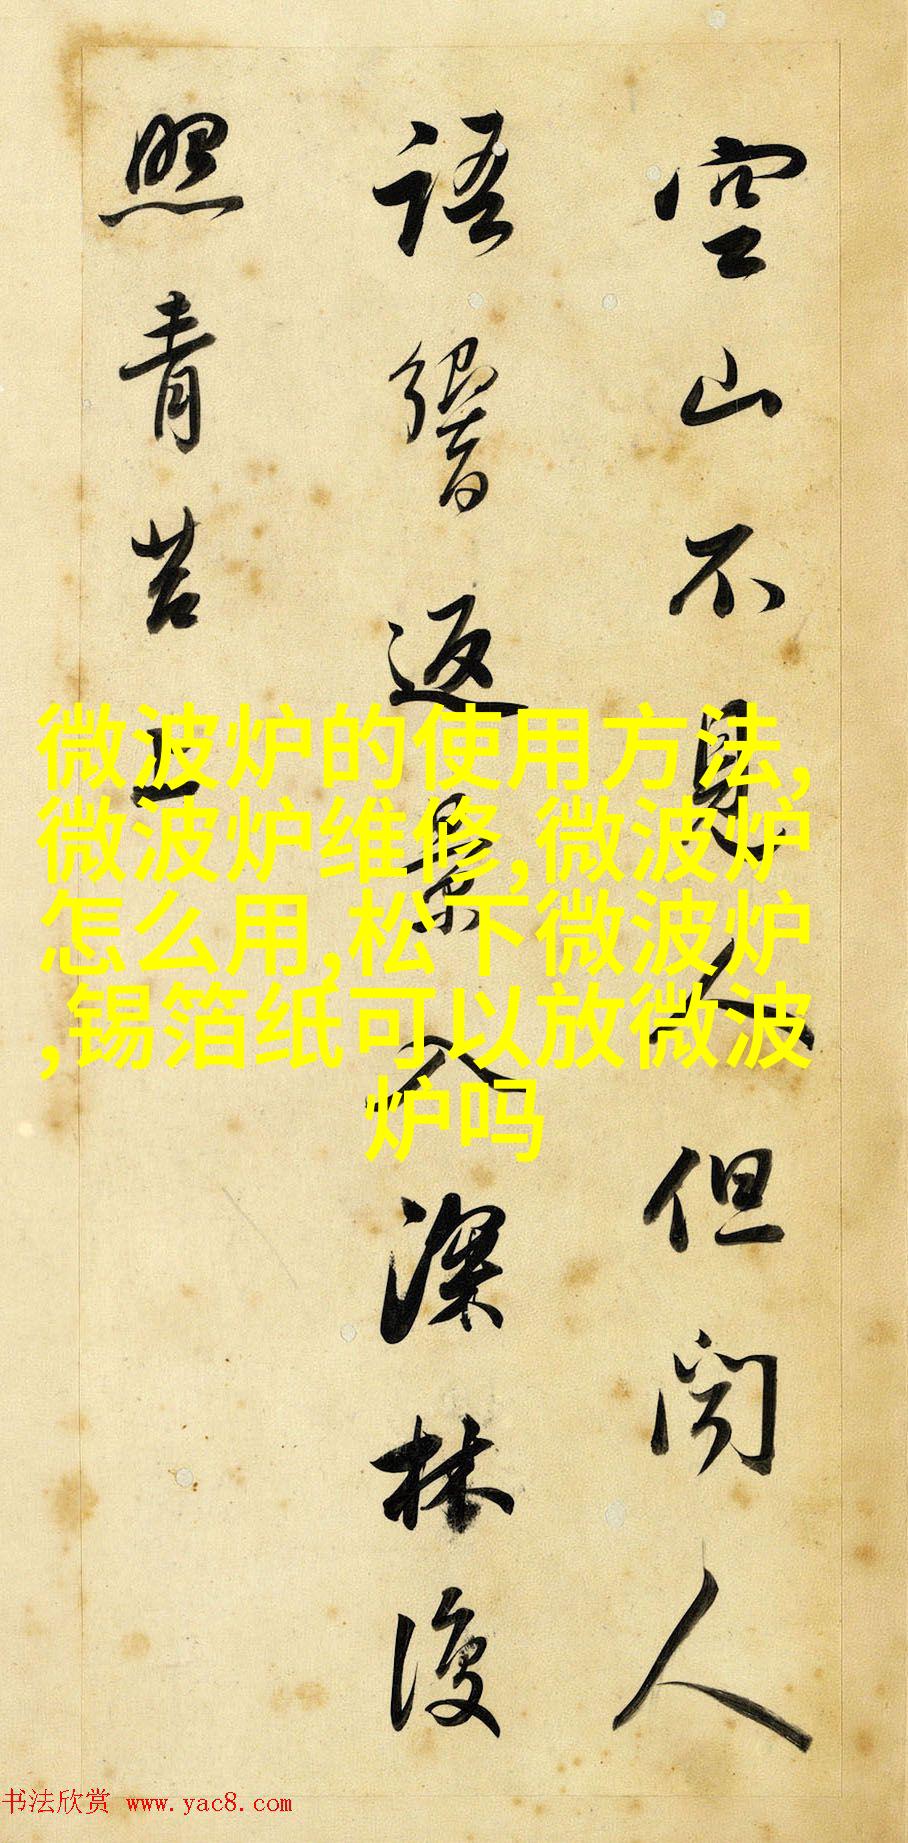 空山不見人但聞人
語響返景入深林復
照青苔上
微波炉的使用方法,
微波炉维修,微波炉
怎么用,松下微波炉
,锡箔纸可以放微波
炉吗
书法欣赏 www.yac8.com